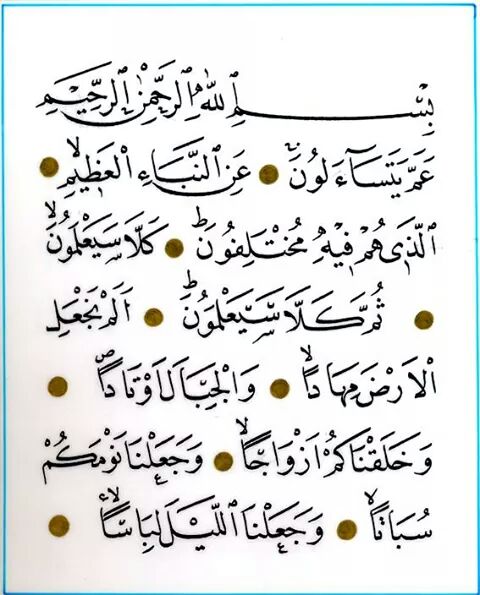 بِسْمِ اللهِ الرَّحْمٰنِ الرَّحِيْمِ
عَمَّ يَتَسَآءَلُوْنَ ۚ عَنِ النَّبَاِ الْعَظِيْمِ ۙ
الَّذِيْ هُمْ فِيْهِ مُخْتَلِفُوْنَ ؕ كَلَّا سَيَعْلَمُوْنَ ۙ
ثُمَّ كَلَّا سَيَعْلَمُوْنَ ؕ اَلَمْ نَجْعَلِ
الْاَرْضَ مِهَادًا ۙ وَالْجِبَالَ اَوْتَادًا ۖ
وَخَلَقْنَاكُمْ اَزْوَاجًا ۙ وَجَعَلْنَا نَوْمَكُمْ
سُبَاتًا ۙ وَجَعَلْنَا الَّيْلَ لِبَاسًا ۙ